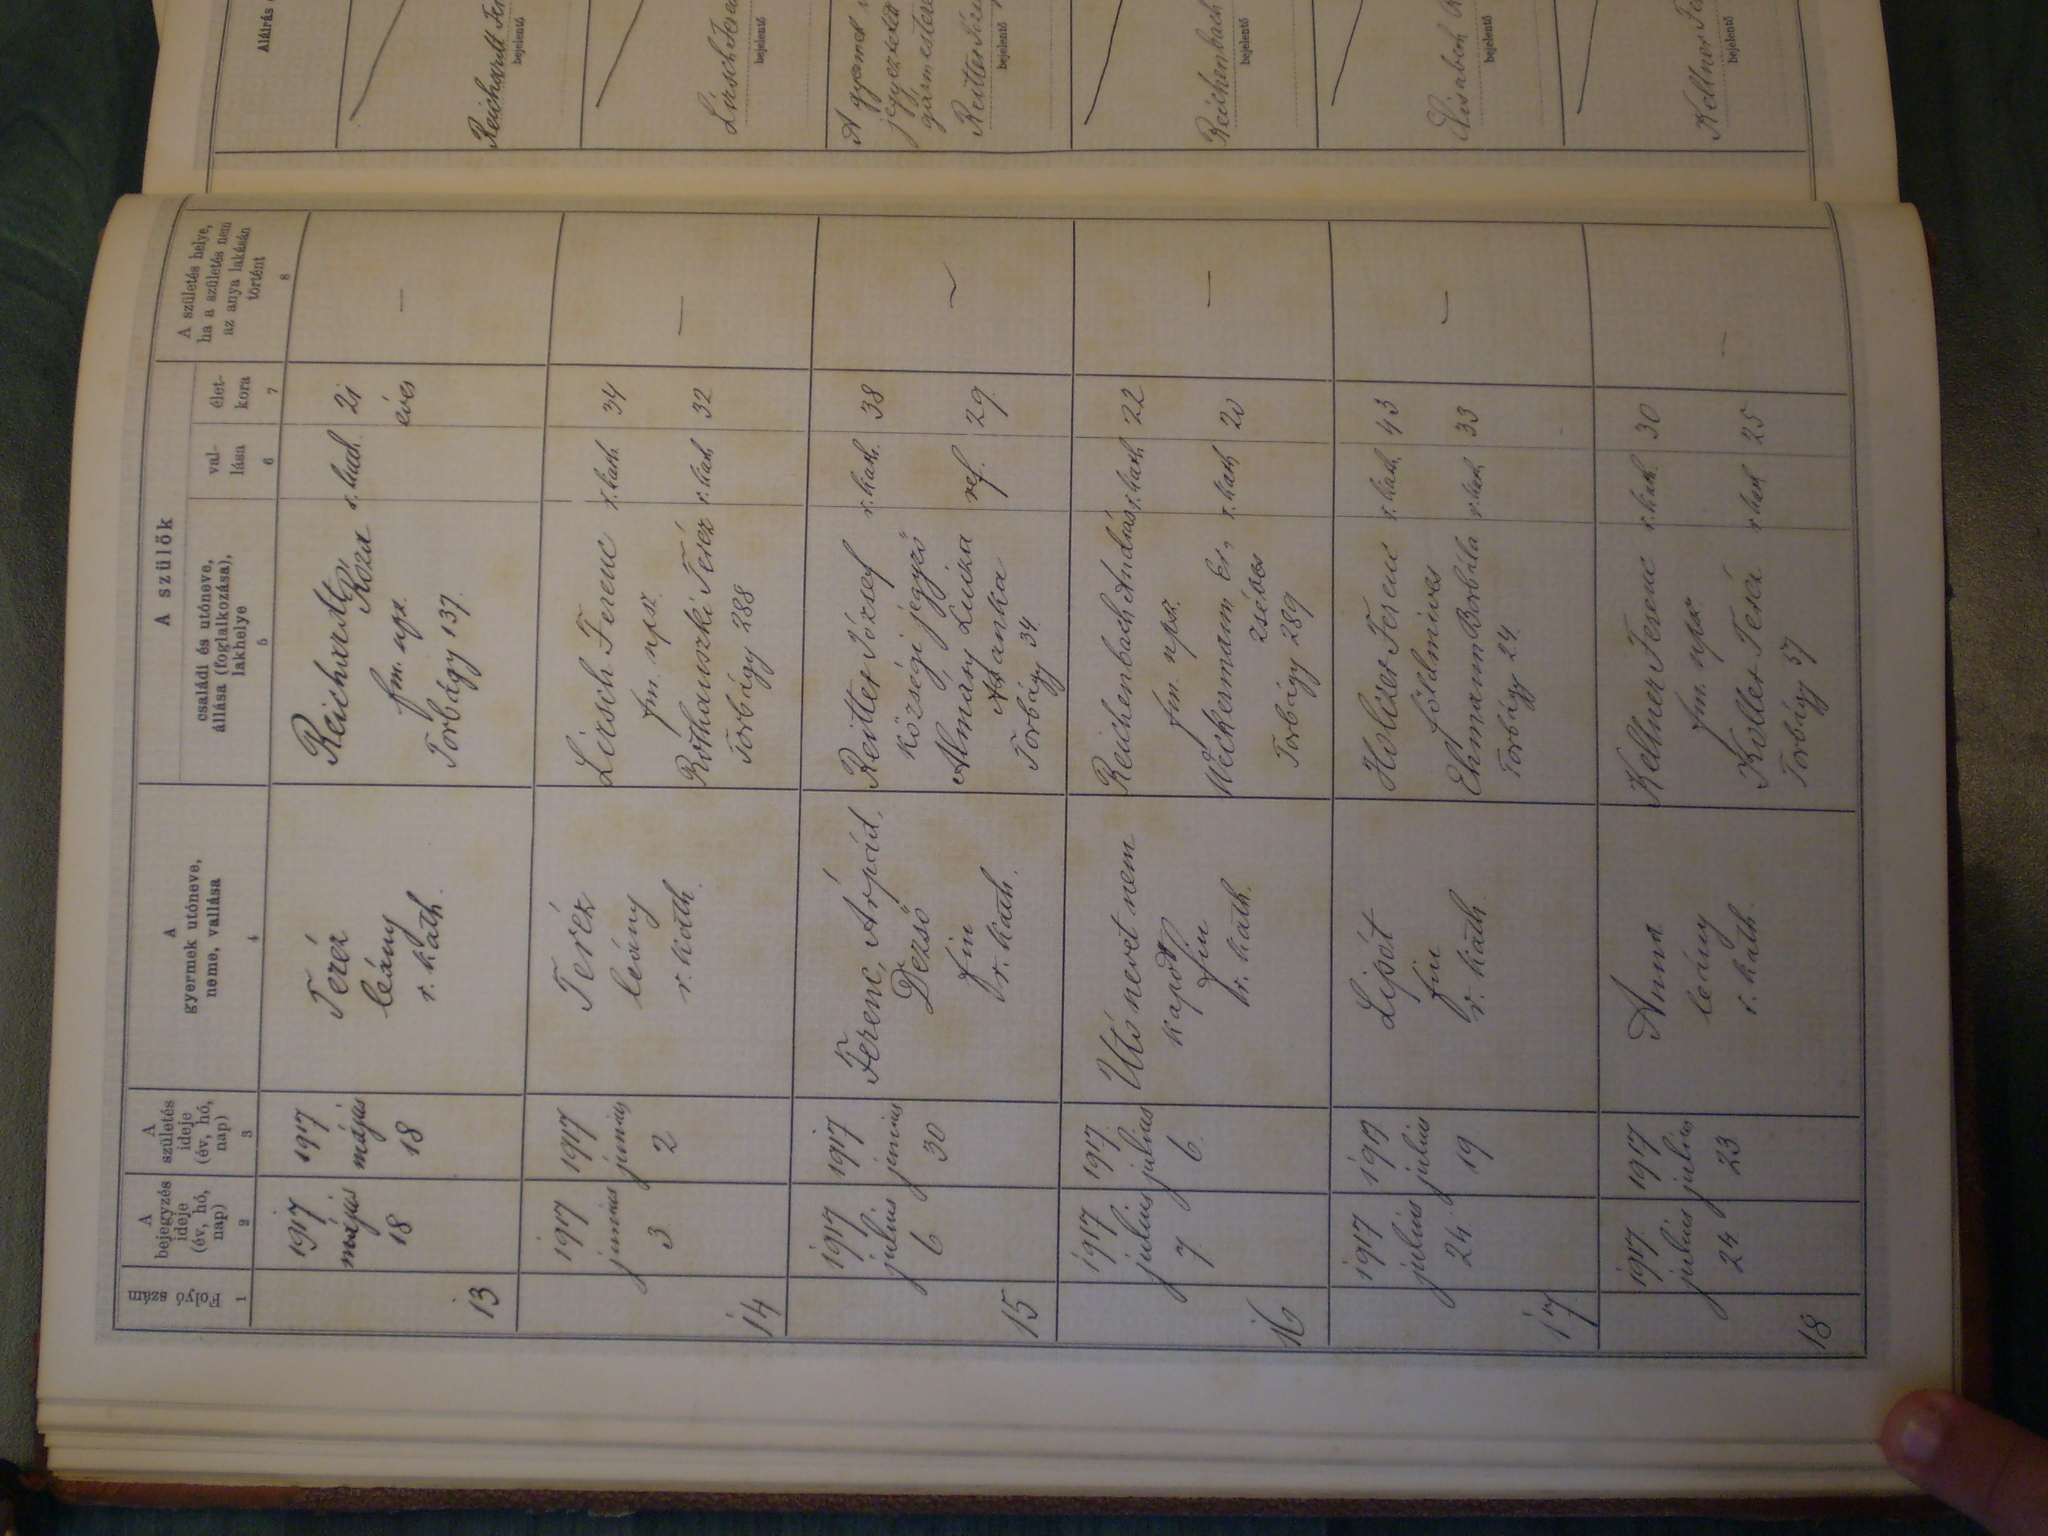 Folyó szám
1
A
bejegyzés
ideje
(év, hó,
nap)
2
A
születés
ideje
(év, hó,
nap)
3
A
gyermek utóneve,
neme, vallása
4
A szülők
családi és utóneve,
állása (foglalkozása),
lakhelye
5
val-
lása
6
élet-
kora
7
A születés helye,
ha a születés nem
az anya lakásán
történt
8
13
1917
május
18
1917
május
18
Teréz
leány
r. kath.
Reichardt
Róza
fm. npsz.
Torbágy 137.
r. kath.
21
éves
—
14
1917
junius
3
1917
junius
2
Teréz
leány
r. kath.
Lirsch Ferenc
fm. npsz.
Rothauszki Teréz
Torbágy 288
r. kath.
34
r. kath
32
—
15
1917
julius
6
1917
junius
30
Ferenc, Árpád,
Dezső
fiu
r. kath.
Reitter József
községi jegyző
Almásy Luiza
Bianka
Torbágy 34.
r. kath.
38
ref.
29.
16
1917
julius
7.
1917.
julius
6.
Utónevet nem
kapott
fiu
r. kath.
Reichenbach András
fm. npsz.
Weckermann Er-
zsébet
Torbágy 289
r. kath
22
r. kath
20
—
17
1917
julius
24.
1917.
julius
19
Lipót
fiu
r. kath.
Holczer Ferenc
földmives
Ehmann Borbála
Torbágy 24.
r. kath.
43
r. kath
33
—
18
1917.
julius
24.
1917
julius
23.
Anna
leány
r. kath.
Kellner Ferenc
fm. npsz
Koller Teréz
Torbágy 57
r. kath.
30
r. kath
25
—
Aláírás
Reichardt
bejelentő
Lirsch Ferenc
bejelentő
A gyermek
Reitter
bejelentő
Reichenbach
bejelentő
Elisabeth
bejelentő
Kellner
bejelentő